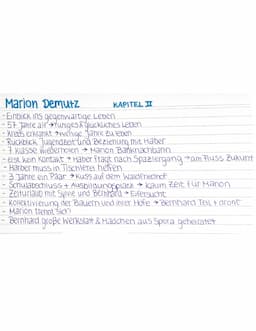 Marion Demutz KAPITEL II
- Einblick ins gegenwärtige Leben
- 57 Jahre alt → ruhiges & glückliches Leben
- Krebs erkrankt → wenige Jahre zu leben
- Rückblick Jugendzeit und Beziehung mit Haber
- 7 Klasse wiederholen → Marion Banknachbarin
- erst kein Kontakt → Haber fragt nach Spaziergang → am Fluss Zukunft
- Haber muss in Tischlerei helfen
- 3 Jahre ein Paar → Kuss auf dem Waldfriedhof
- Schulabschluss + Ausbildungsplatz → kaum Zeit für Marion
- Zelturlaub mit Sylvie und Bernhard → Eifersucht
- Kollektivierung der Bauern und ihrer Höfe → Bernhard Teil davon
- Marion trennt sich
- Bernhard große Werkstatt & Mädchen aus Spora geheiratet